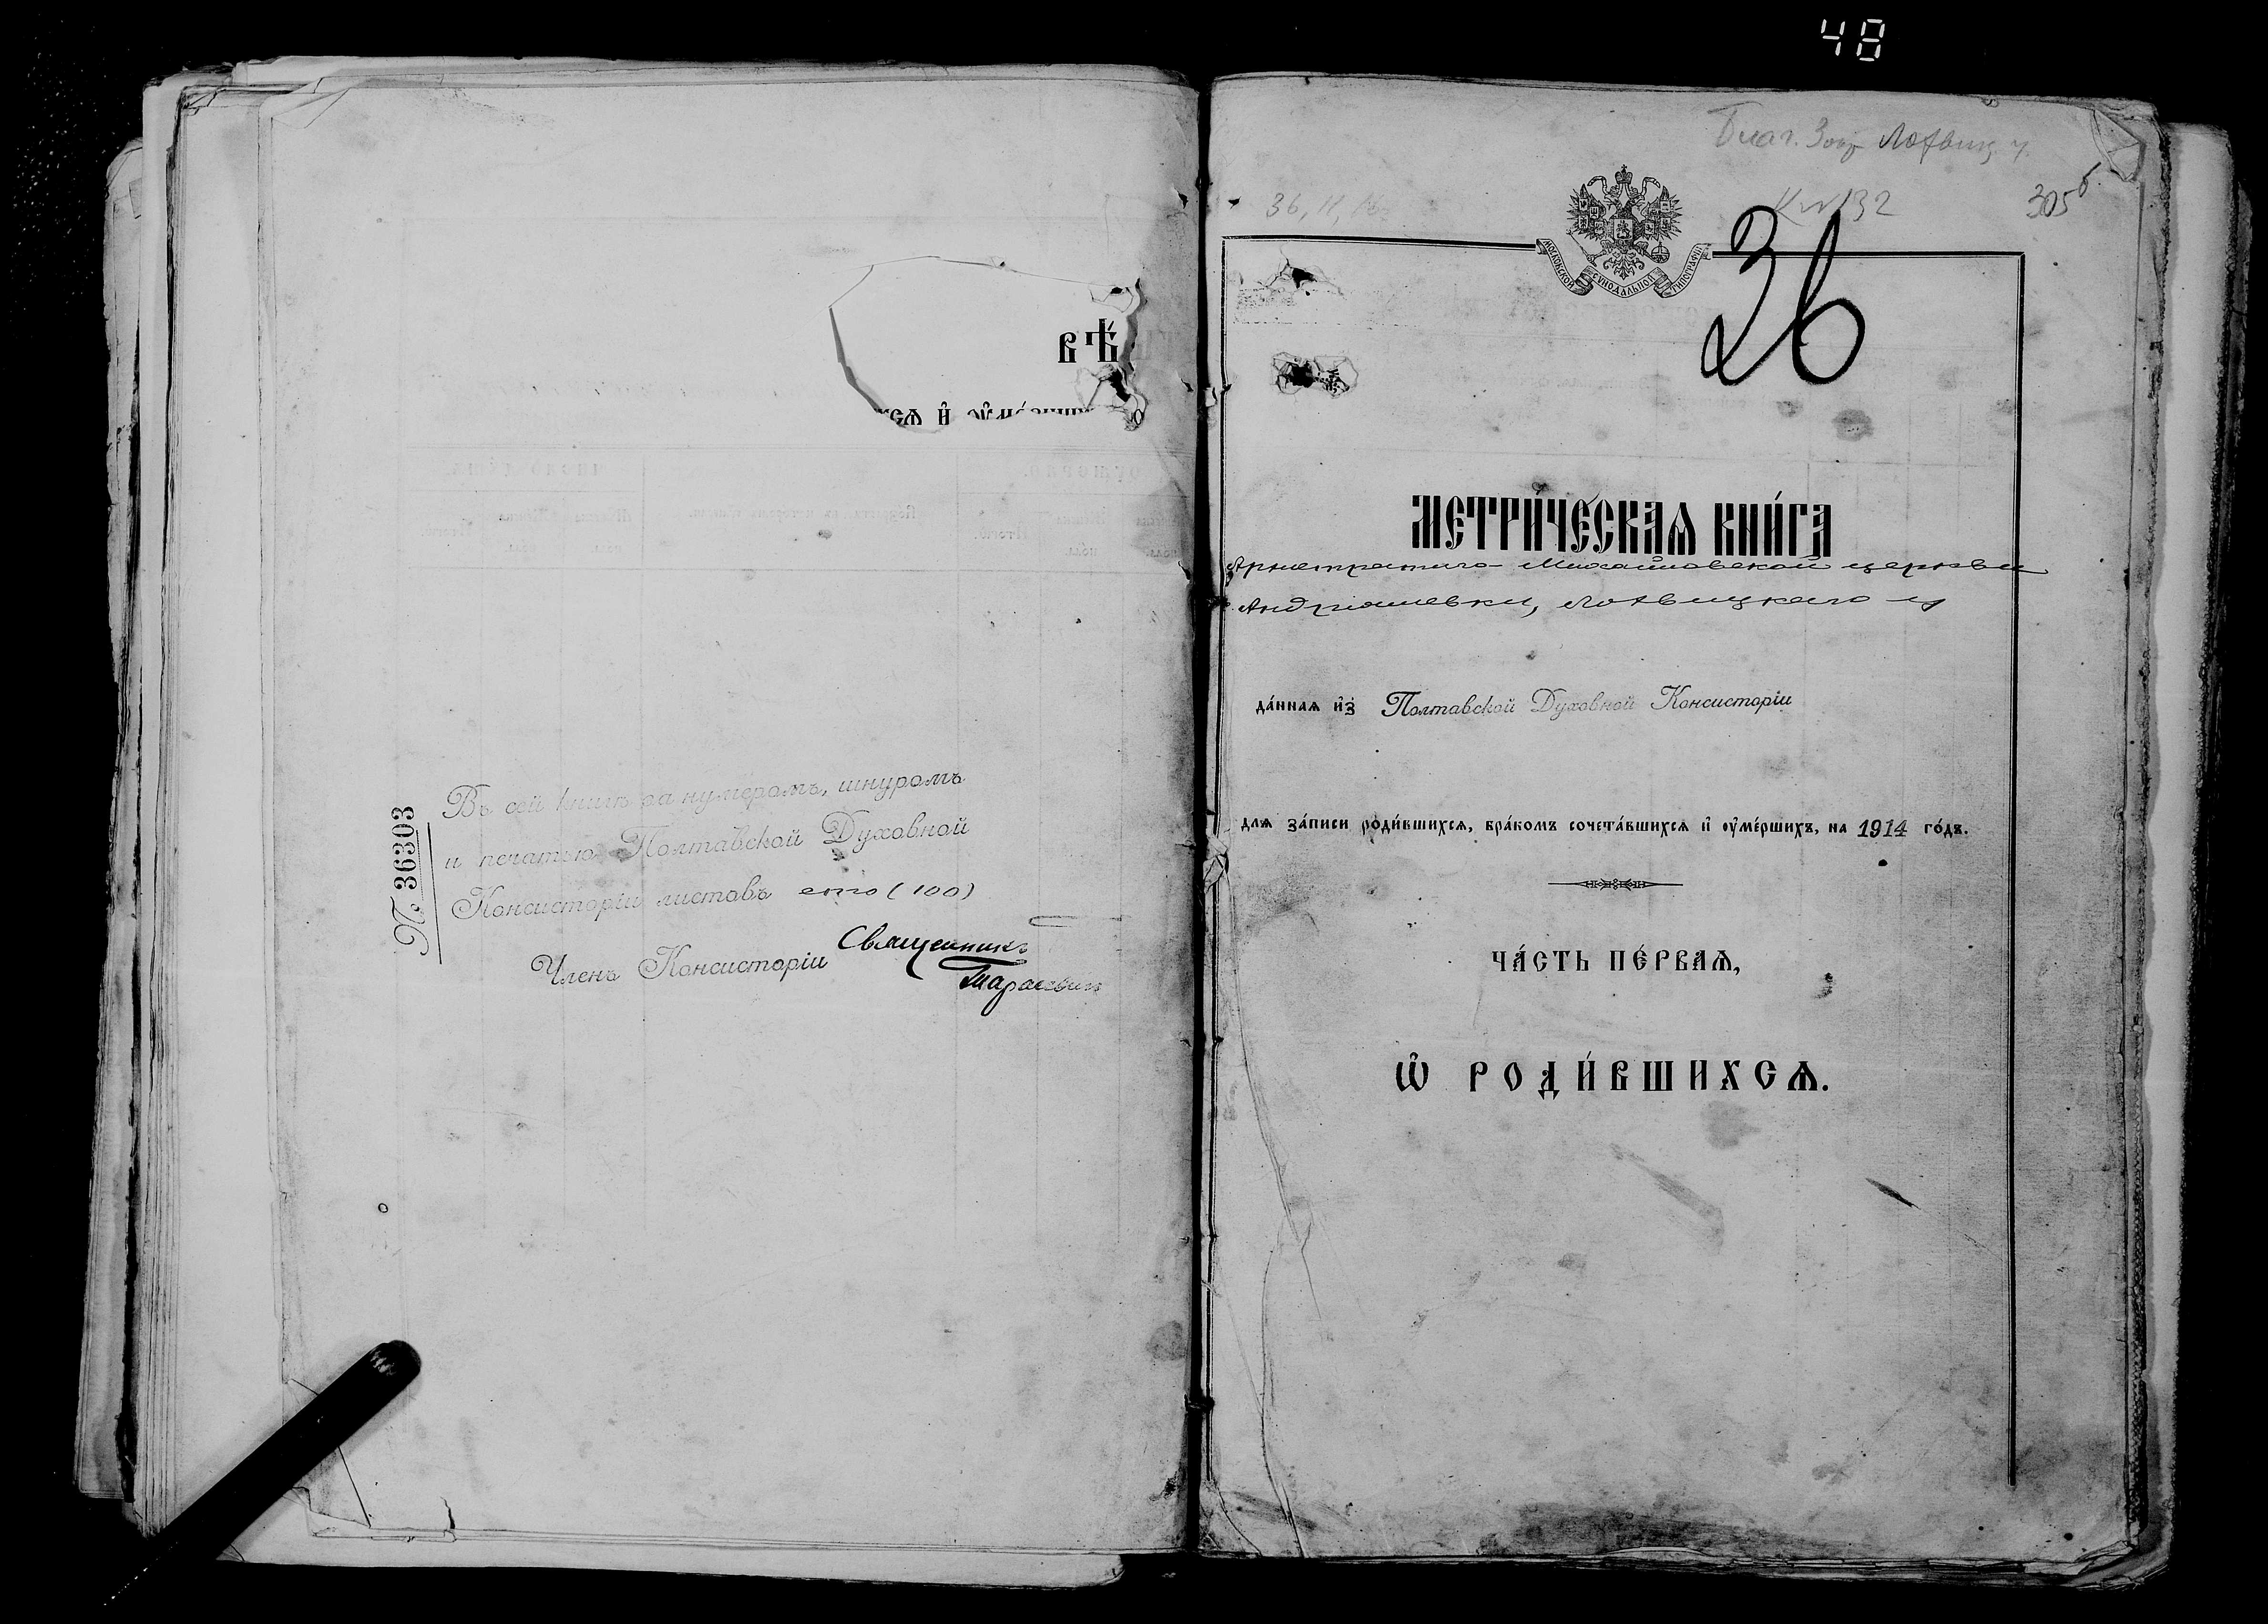 48
вѣ
№ 36303
Въ сей книгѣ за нумеромъ, шнуромъ
и печатью Полтавской Духовной
Консисторіи листовъ сто (100)
Членъ Консисторіи Священникъ
Тарасевич
Благ. Лохвиц. у.
305б
36
МОСКОВСКОЙ СѴНОДАЛЬНОЙ ТИПОГРАФІИ
МЕТРИ́ЧЕСКАѦ КНИ́ГА
Архистратиго-Михайловской церкви
Андріяшевки, Лохвицкаго у
да́ннаѧ и҆з̾ Полтавской Духовной Консисторіи
длѧ за́писи роди́вшихсѧ, бра́комъ сочета́вшихсѧ и҆ ᲂу҆ме́ршихъ, на 1914 го́дъ.
ЧА́СТЬ ПЕ́РВАѦ,
Ѡ҆ РОДИ́ВШИХСѦ.